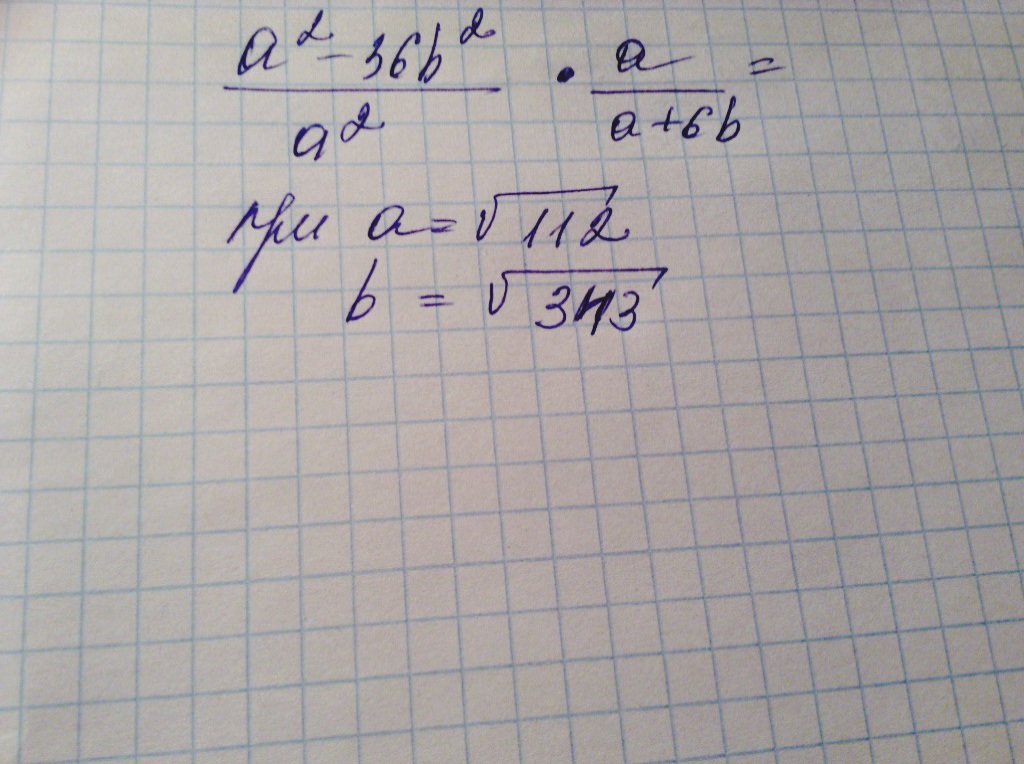 a² - 36b² / a² · a / a+6b =
при a = √112
b = √343